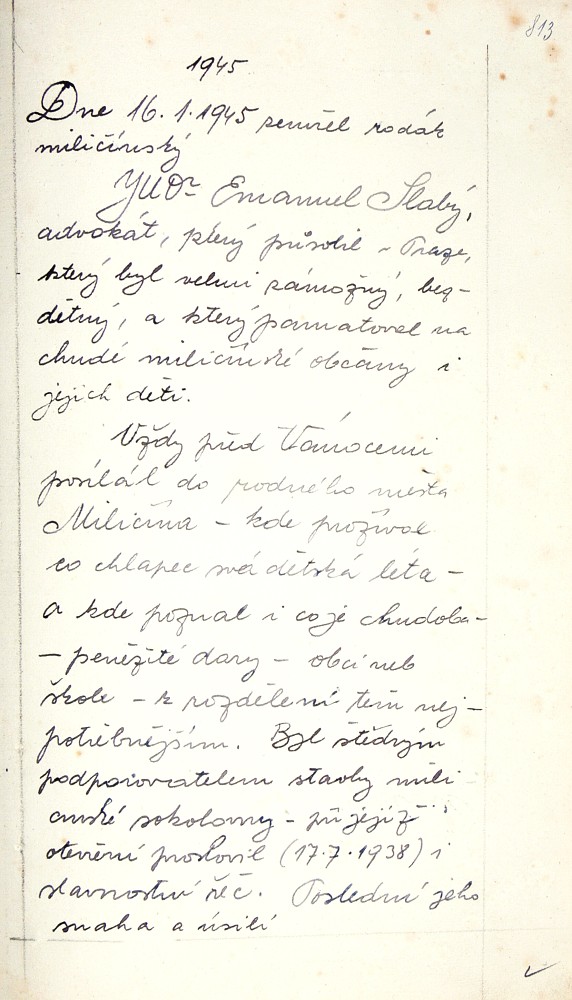 813
1945
Dne 16.1.1945 zemřel rodák
miličínský
JUDr Emanuel Slabý,
advokát, který působil v Praze,
který byl velmi zámožný, bez-
dětný, a který pamatoval na
chudé miličínské občany i
jejich děti.
Vždy před Vánocemi
posílal do rodného města
Miličína – kde prožíval
co chlapec svá dětská léta –
a kde poznal i co je chudoba –
– peněžité dary – obci neb
škole – k rozdělení těm nej-
potřebnějším. Byl štědrým
podporovatelem stavby mili
cínské sokolovny – při jejíž
otevření proslovil (17.7.1938) i
slavnostní řeč. Poslední jeho
snaha a úsilí